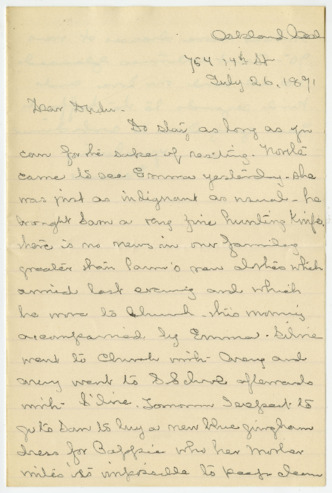 Oakland Cal
764 14th St
July 26, 1891
Dear
Do stay as long as you
can for the sake of resting.
came to see Emma yesterday - she
was just as indignant as usual - he
brought Sam a very fine hunting knife,
there is no news in our family
greater than Sam's new clothes which
arrived last evening and which
he wore to Church this morning
accompanied by Emma.
went to Church with Avery and
Avery went to S School afterwards
with Tomorrow I expect to
go to buy a new blue gingham
dress for who her Mother
writes it's impossible to keep clean